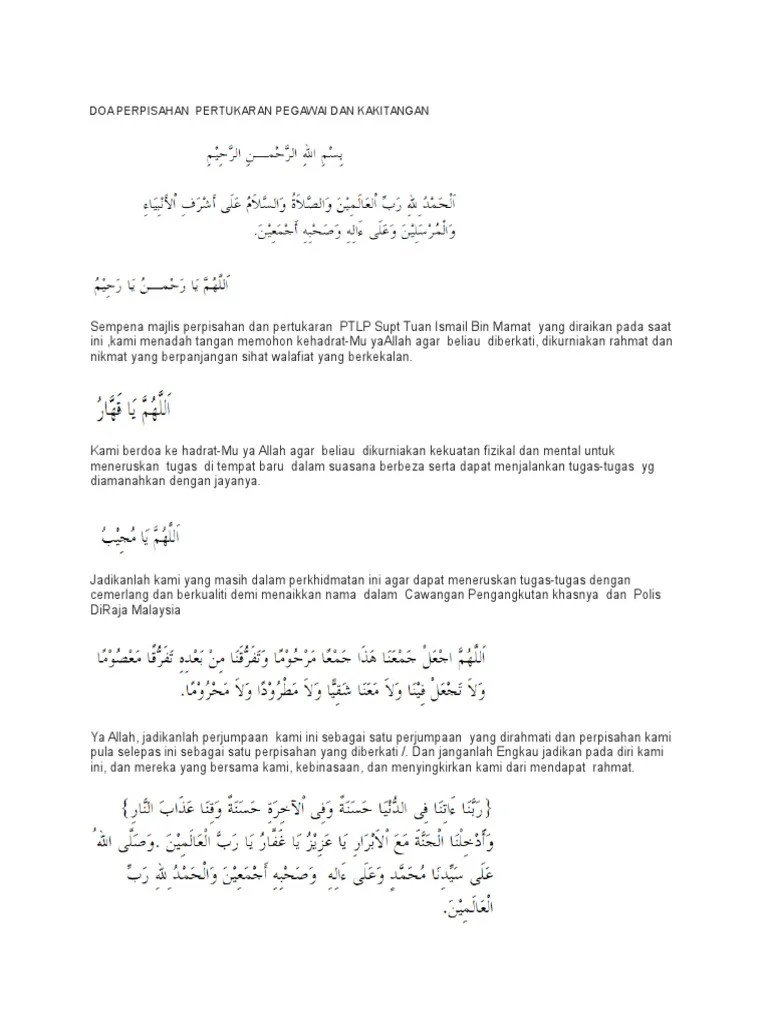 DOA PERPISAHAN PERTUKARAN PEGAWAI DAN KAKITANGAN
بِسْمِ اللهِ الرَّحْمـــنِ الرَّحِيْمِ
اَلْحَمْدُ لِلهِ رَبِّ اْلعَالَمِيْنَ وَالصَّلاَةُ وَالسَّلاَمُ عَلَى أَشْرَفِ اْلأَنْبِيَاءِ
وَالْمُرْسَلِيْنَ وَعَلَى ءَالِهِ وَصَحْبِهِ أَجْمَعِيْنَ.
اَللَّهُمَّ يَا رَحْمـــنُ يَا رَحِيْمُ
Sempena majlis perpisahan dan pertukaran PTLP Supt Tuan Ismail Bin Mamat yang diraikan pada saat
ini ,kami menadah tangan memohon kehadrat-Mu yaAllah agar beliau diberkati, dikurniakan rahmat dan
nikmat yang berpanjangan sihat walafiat yang berkekalan.
اَللَّهُمَّ يَا قَهَّارُ
Kami berdoa ke hadrat-Mu ya Allah agar beliau dikurniakan kekuatan fizikal dan mental untuk
meneruskan tugas di tempat baru dalam suasana berbeza serta dapat menjalankan tugas-tugas yg
diamanahkan dengan jayanya.
اَللَّهُمَّ يَا مُجِيْبُ
Jadikanlah kami yang masih dalam perkhidmatan ini agar dapat meneruskan tugas-tugas dengan
cemerlang dan berkualiti demi menaikkan nama dalam Cawangan Pengangkutan khasnya dan Polis
DiRaja Malaysia
اَللَّهُمَّ اجْعَلْ جَمْعَنَا هَذَا جَمْعًا مَرْحُوْمًا وَتَفَرُّقَنَا مِنْ بَعْدِهِ تَفَرُّقًا مَعْصُوْمًا
وَلاَ تَجْعَلْ فِيْنَا وَلاَ مَعَنَا شَقِيًّا وَلاَ مَطْرُوْدًا وَلاَ مَحْرُوْمًا.
Ya Allah, jadikanlah perjumpaan kami ini sebagai satu perjumpaan yang dirahmati dan perpisahan kami
pula selepas ini sebagai satu perpisahan yang diberkati /. Dan janganlah Engkau jadikan pada diri kami
ini, dan mereka yang bersama kami, kebinasaan, dan menyingkirkan kami dari mendapat rahmat.
{رَبَّنَا ءَاتِنَا فِى الدُّنْيَا حَسَنَةً وَفِى اْلآخِرَةِ حَسَنَةً وَقِنَا عَذَابَ النَّارِ}
وَأَدْخِلْنَا الْجَنَّةَ مَعَ اْلأَبْرَارِ يَا عَزِيْزُ يَا غَفَّارُ يَا رَبَّ الْعَالَمِيْنَ .وَصَلَّى اللهُ
عَلَى سَيِّدِنَا مُحَمَّدٍ وَعَلَى ءَالِهِ وَصَحْبِهِ أَجْمَعِيْنَ وَالْحَمْدُ لِلهِ رَبِّ
الْعَالَمِيْنَ.